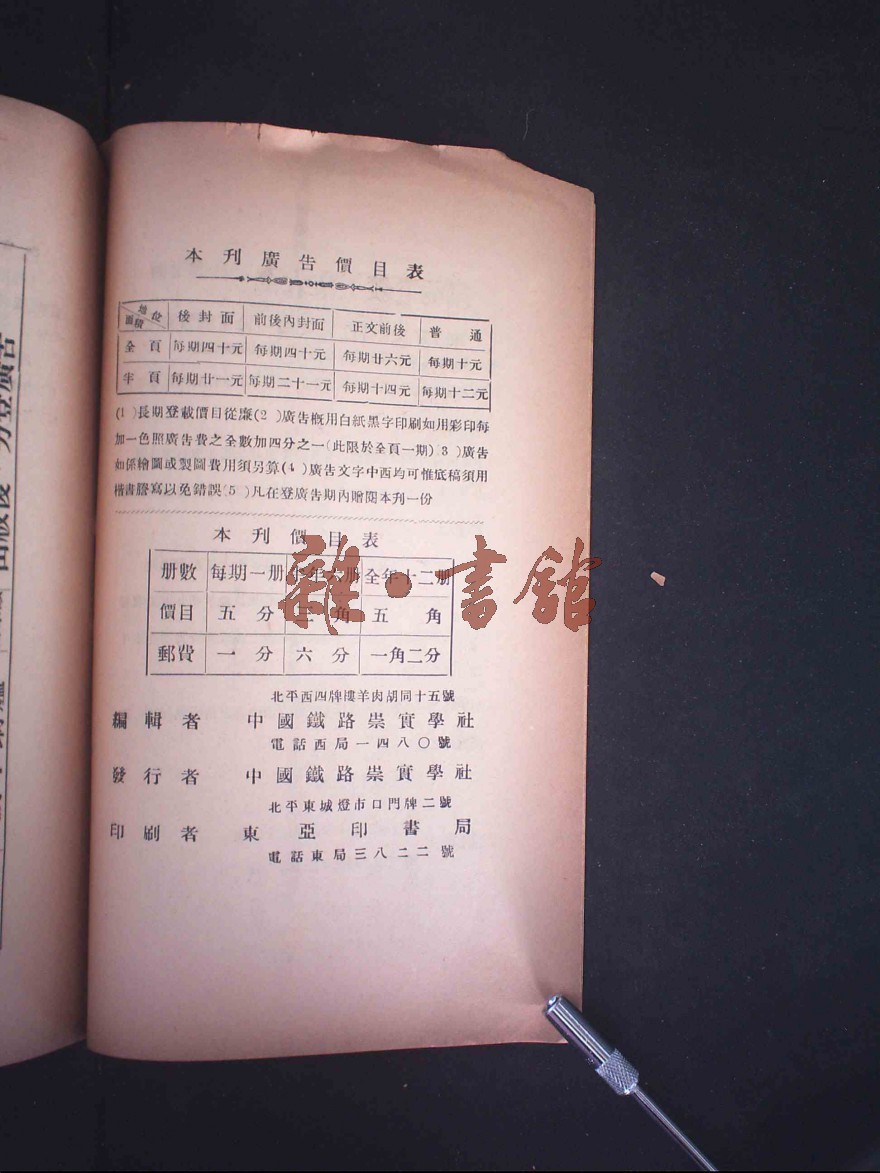 本刋廣告價目表
地位 面積 後封面 前後內封面 正文前後 普通
全頁 每期四十元 每期四十元 每期廿六元 每期十元
半頁 每期廿一元 每期二十一元 每期十四元 每期十二元
(1)長期登載價目從廉(2)廣告槪用白紙黑字印刷如用彩印每
加一色照廣告費之全數加四分之一(此限於全頁一期)3)廣告
如係繪圖或製圖費用須另算(4)廣告文字中西均可惟底稿須用
楷書謄寫以免錯誤(5)凡在登廣告期內贈閱本刋一份
本刋價目表
册數 每期一册 年六册 全年十二册
價目 五分 三角 五角
郵費 一分 六分 一角二分
北平西四牌樓羊肉胡同十五號
編輯者 中國鐵路崇實學社
電話西局一四八〇號
發行者 中國鐵路崇實學社
北平東城燈市口門牌二號
印刷者 東亞印書局
電話東局三八二二號
雜·書館